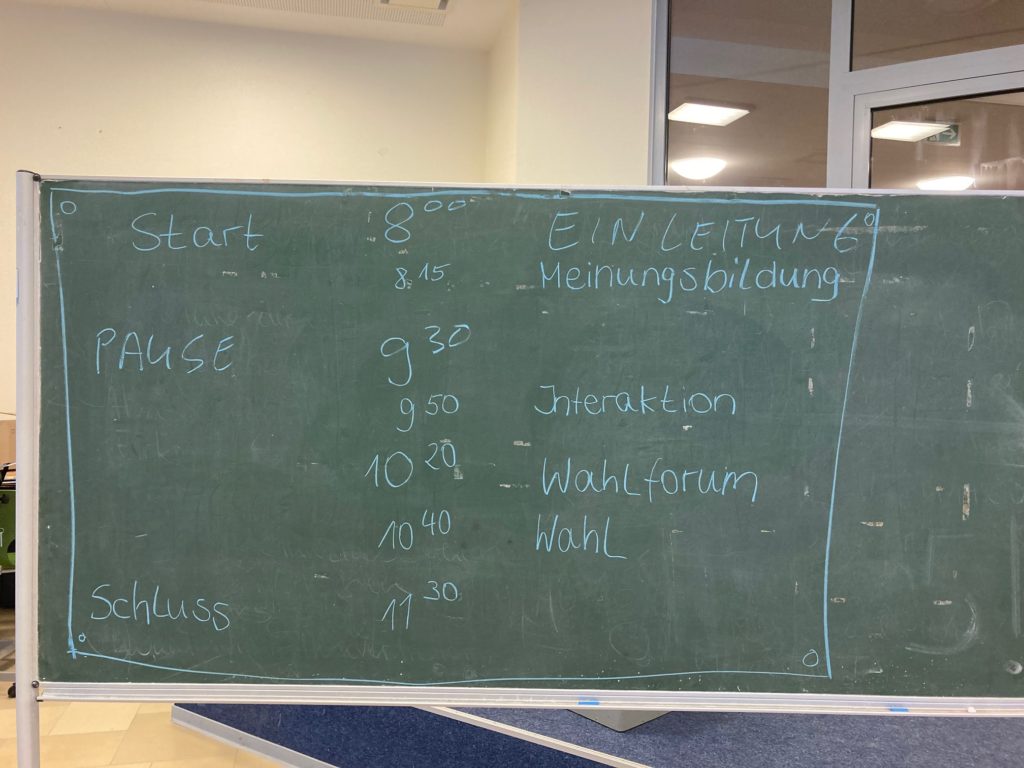 Start 8⁰⁰ EINLEITUNG
8¹⁵ Meinungsbildung
PAUSE 9³⁰
9⁵⁰ Interaktion
10²⁰ Wahlforum
10⁴⁰ Wahl
Schluss 11³⁰